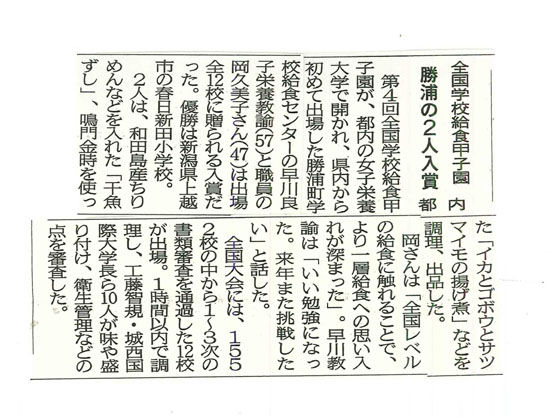 全国学校給食甲子園
勝浦の2人入賞
都内
第4回全国学校給食甲
子園が、都内の女子栄養
大学で開かれ、県内から
初めて出場した勝浦町学
校給食センターの早川良
子栄養教諭(57)と職員の
岡久美子さん(47)は出場
全12校に贈られる入賞だ
った。優勝は新潟県上越
市の春日新田小学校。
2人は、和田島産ちり
めんなどを入れた「干魚
ずし」、鳴門金時を使っ
た「イカとゴボウとサツ
マイモの揚げ煮」などを
調理、出品した。
岡さんは「全国レベル
の給食に触れることで、
より一層給食への思い入
れが深まった」。早川教
諭は「いい勉強になっ
た。来年また挑戦した
い」と話した。
全国大会には、155
2校の中から1~3次の
書類審査を通過した12校
が出場。1時間以内で調
理し、工藤智規・城西国
際大学長ら10人が味や盛
り付け、衛生管理などの
点を審査した。